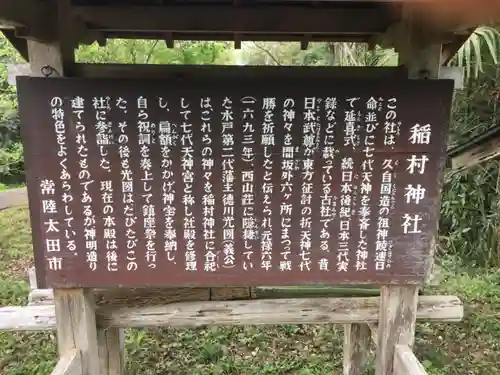 稲村神社
この社は、久自国造の祖神饒速日
命並びに七代天神を奉斎した神社
で延喜式、続日本後紀、日本三代実
録などに載っている古社である。昔
日本武尊が東方征討の折天神七代
の神々を間坂外六ヶ所にまつって戦
勝を祈願したと伝えられ元禄六年
(一六九三年)西山荘に隠棲してい
た水戸第二代藩主徳川光圀(義公)
はこれらの神々を稲村神社に合祀
して七代天神宮と称し社殿を修理
し、扁額をかかげ神宝を奉納し、
自ら祝詞を奏上して鎮座祭を行っ
た。その後も光圀はたびたびこの
社に参詣した。現在の本殿は後に
建てられたものであるが神明造り
の特色をよくあらわしている。
常陸太田市